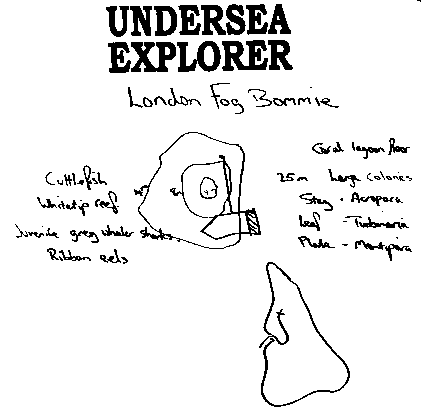 UNDERSEA
EXPLORER
London Fog Bommie
Cuttlefish
Whitetip reef
Juvenile grey whaler sharks.
Ribbon eels
Coral lagoon floor
25m Large colonies
Stag - Acropora
Leaf - Turbinaria
Plate - Montipora